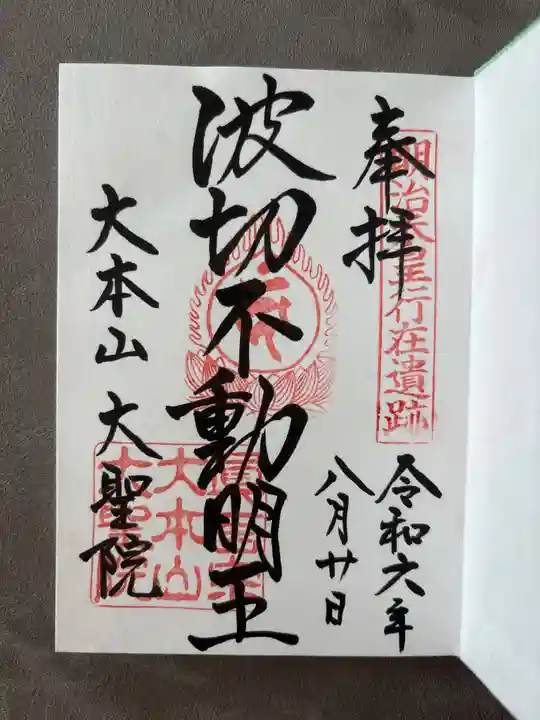 奉拝
明治天皇行在遺跡
令和六年
八月廿日
波切不動明王
大本山 大聖院
大本山